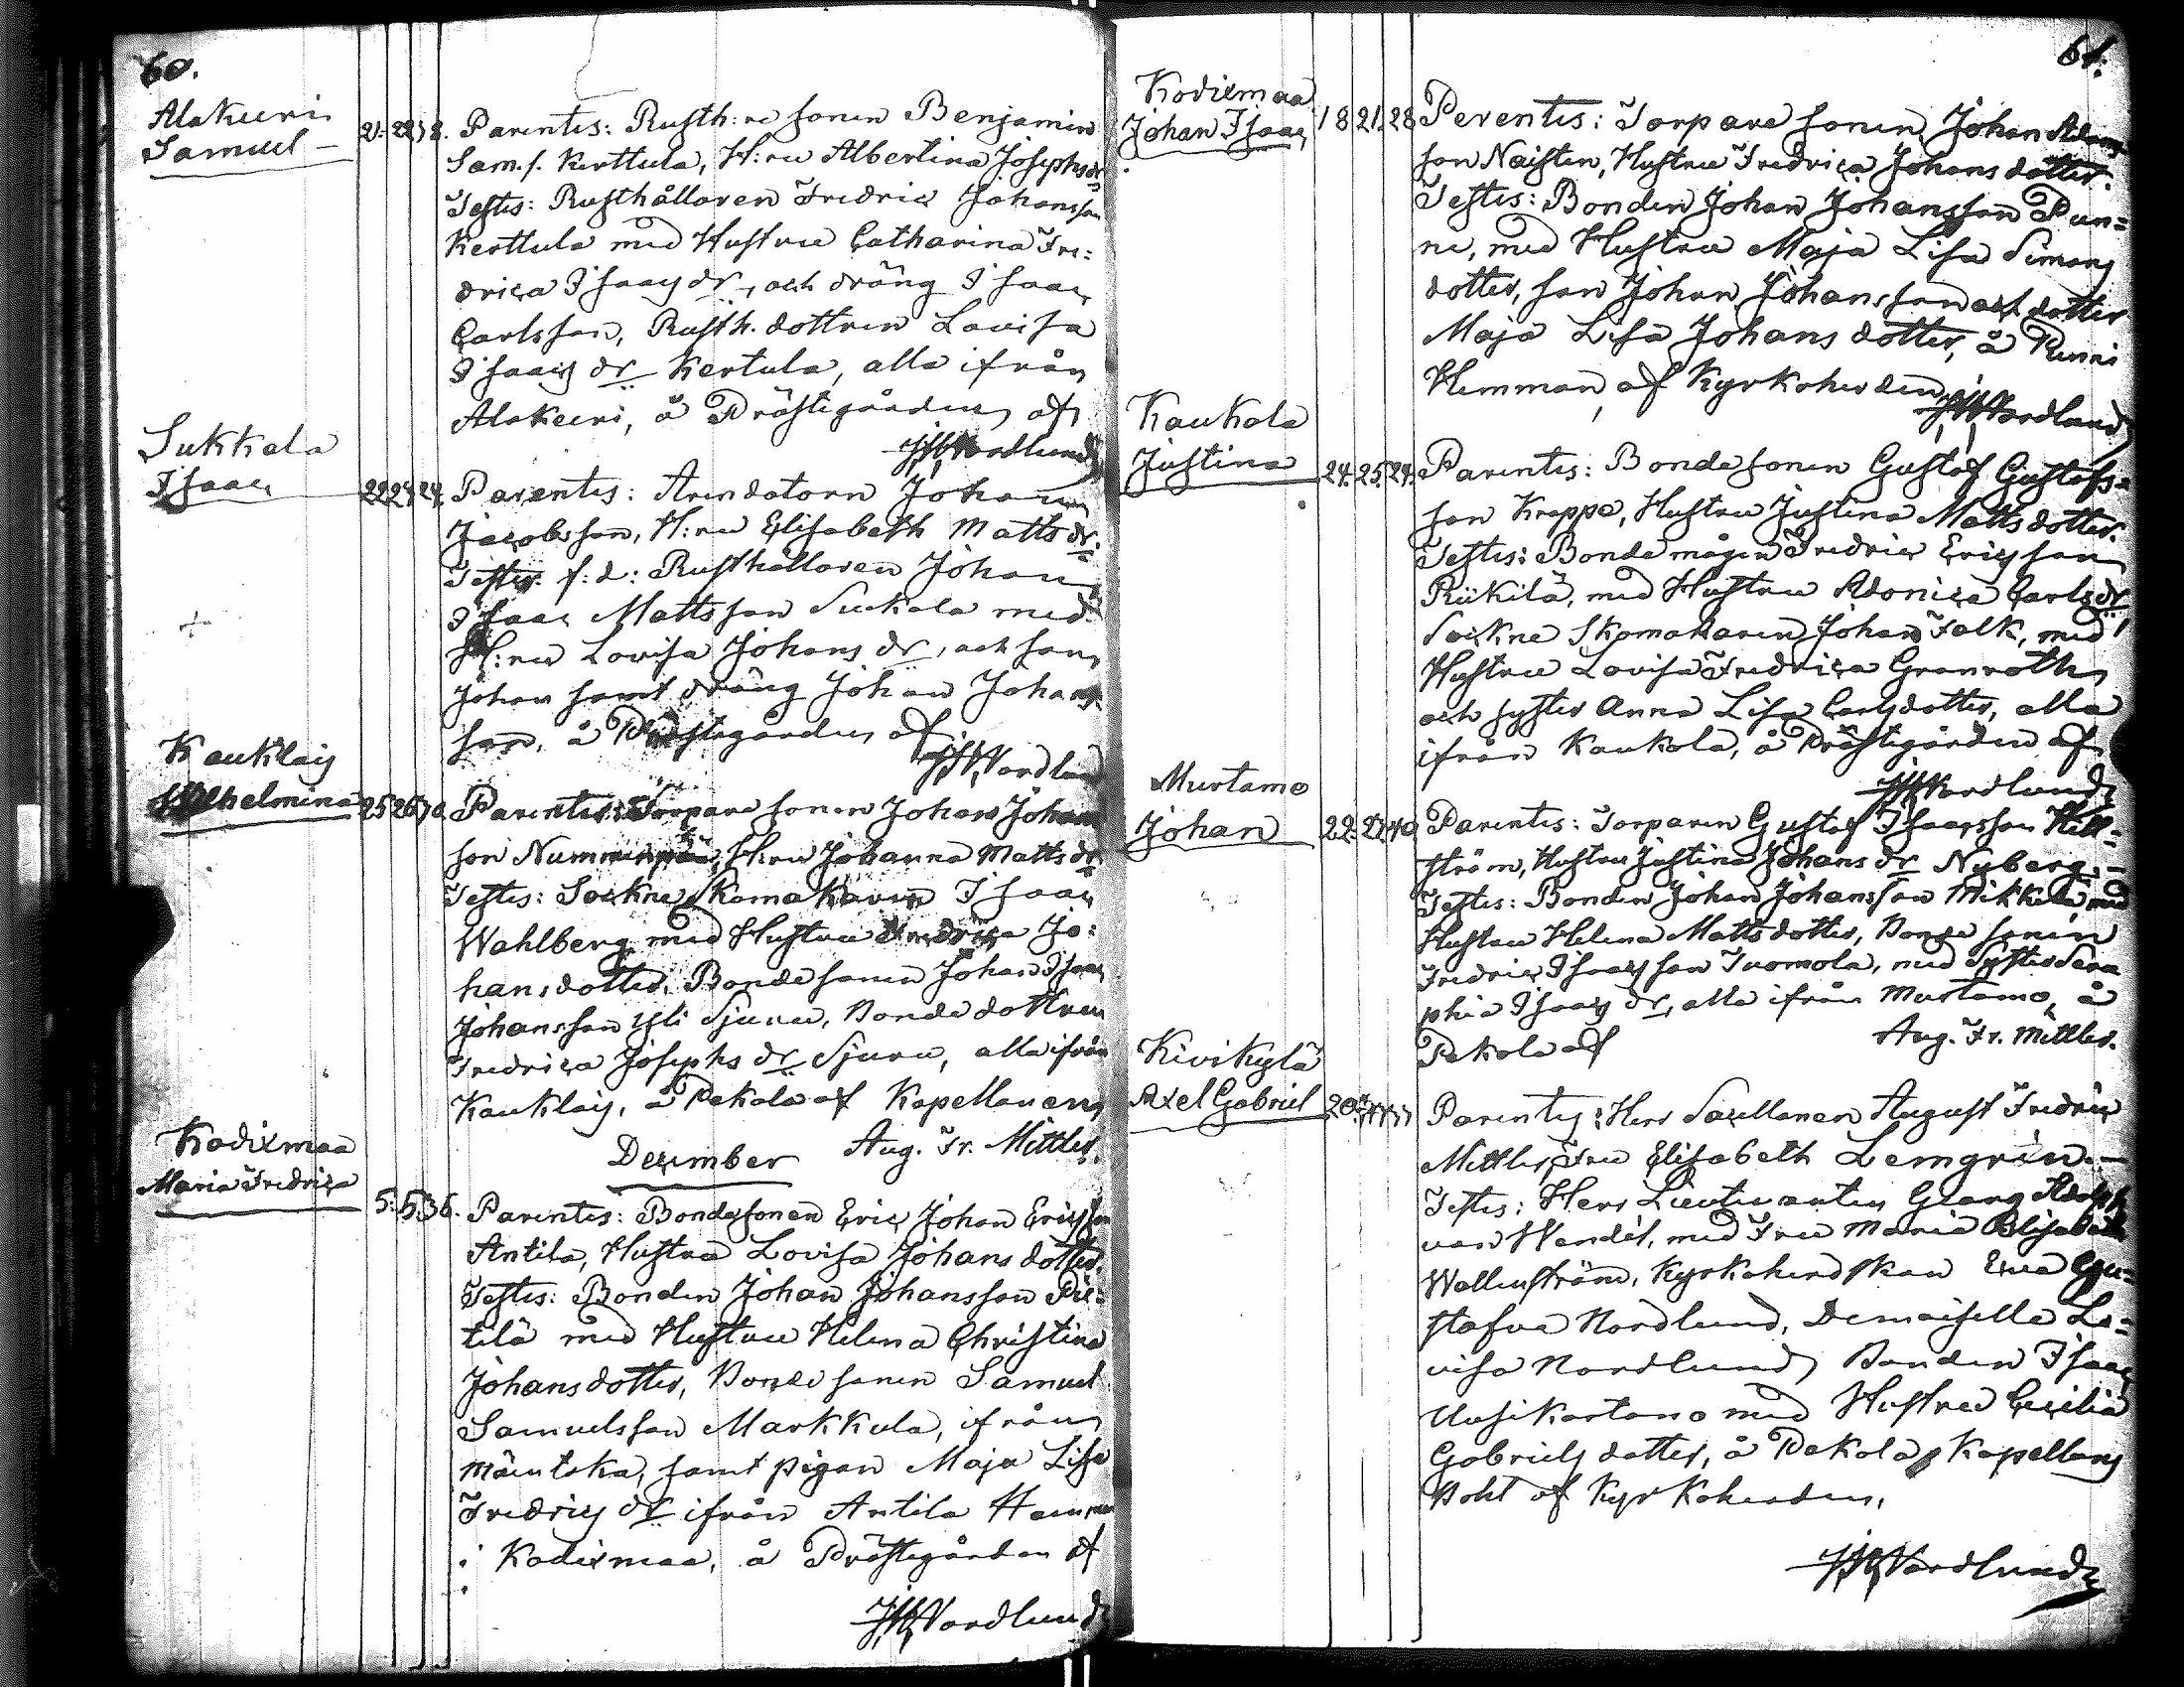 60.
Alakeeri
Samuel
21. 22. 38. Parentes: Rusth:re sonen Benjamin
Sam.s. Kerttula, H:ru Albertina Josephs dr
Testes: Rusthållaren Fredric Johansson
Kerttula med Hustru Catharina Fre:
drica Isaacs dr, och dräng Isaac
Carlsson, Rusth. dottren Lovisa
Isaacs dr Kertula, alla ifrån
Alakeeri, å Prästegården af
Nordlund
Sukkala
Isaac
22. 24. 24. Parentes: Arendatorn Johan
Jacobsson, H:ru Elisabeth Matts dr.
Testes: f:d: Rusthållaren Johan
Isaac Mattsson Suckala med
H:ru Lovisa Johans dr, och son
Johan samt dräng Johan Johans
son, å Prästegården af
Nordlund
Kauklais
Wilhelmina
25. 26. Parentes: Torpare sonen Johan Johans
son Nummenpää, H:ru Johanna Matts dr
Testes: Sockne Skomakaren Isaac
Wahlberg med Hustru Fredrica Jo:
hansdotter, Bonde sonen Johan Isaac
Johansson Yli Sjuru, Bonde dottren
Fredrica Josephs dr Sjuru, alla ifrån
Kauklais, å Pekola af Kapellanen
Aug. Fr. Mittler.
December
Kodixmaa
Maria Fredrica
5. 5. 36. Parentes: Bondesonen Eric Johan Ericsson
Antila, Hustru Lovisa Johans dotter.
Testes: Bonden Johan Johansson Pie:
tilä med Hustru Helena Christina
Johansdotter, Bonde sonen Samuel
Samuelsson Markkula, ifrån
Mäentaka, samt pigan Maja Lisa
Fredrics dr ifrån Antila Hemman
i Kodixmaa, å Prästegården af
Nordlund
61.
Kodixmaa
Johan Isaac
18. 21. 28. Perentes: Torpare sonen Johan Adams
son Naisten, Hustru Fredrica Johans dotter.
Testes: Bonden Johan Johansson Pun=
ni, med Hustru Maja Lisa Simons
dotter, son Johan Johansson och dotter
Maja Lisa Johans dotter, å Punni
Hemman, af Kyrkoherden
Nordlund
Kaukola
Justina
24. 25. 24. Parentes: Bonde sonen Gustaf Gustafs=
son Krappe, Hustru Justina Mattsdotter.
Testes: Bonde mågen Fredric Ericsson
Riikilä, med Hustru Adonica Carls dr
Sockne Skomakaren Johan Falk, med
Hustru Lovisa Fredrica Granroth
och syster Anna Lisa Carlsdotter, alla
ifrån Kaukola, å Prästegården af
Nordlund
Murtamo
Johan
22. 27. 40. Parentes: Torparen Gustaf Isaacsson Hell=
ström, Hustru Justina Johans dr Nyberg.
Testes: Bonden Johan Johansson Mikkola med
Hustru Helena Mattsdotter, Bonde sonen
Fredric Isaacsson Tuomola, med Syster Sera
phia Isaacs dr, alla ifrån Murtamo, å
Pekola af Aug. Fr. Mittler.
Kivikylä
Axel Gabriel
Parentes: Herr Sacellanen August Fredric
Mittler, Fru Elisabeth Lemgrén.
Testes: Herr Lieutenanten Georg Adolph
von Wendel, med Fru Maria Elisabeth
Wallenström, Kyrkoherdskan Eva Gu=
stafva Nordlund, Demoiselle Lo=
visa Nordlund, Bonden Isaac
Uusikartano med Hustru Cecilia
Gabriels dotter, å Pekola Kapellans
Bohl af Kyrkoherden,
Nordlund